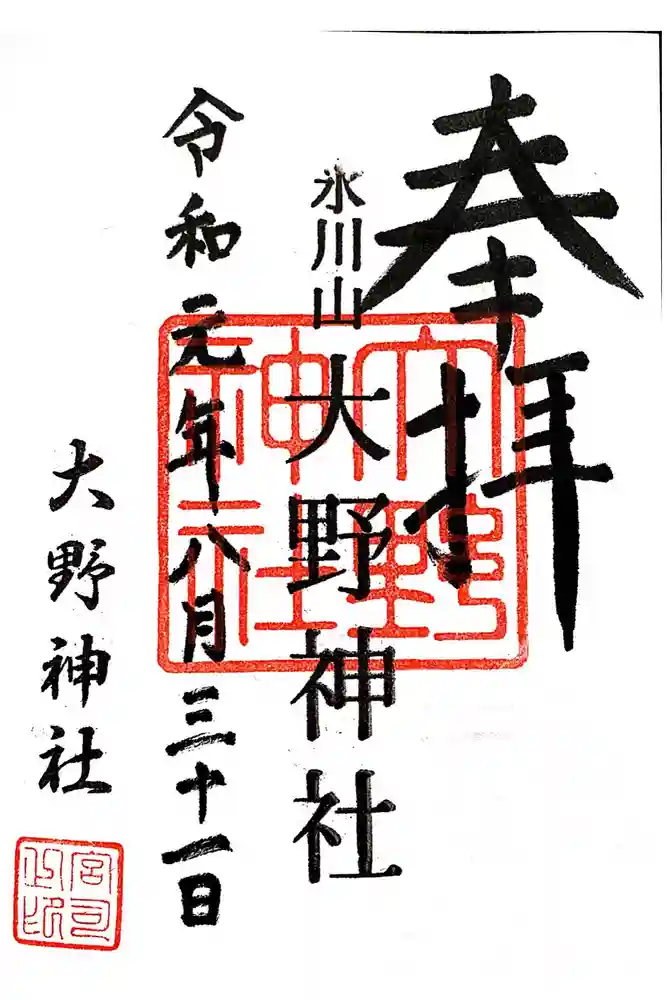 奉拝
氷川山
大野神社
令和元年八月三十一日
大野神社
大野神社
宮司之印